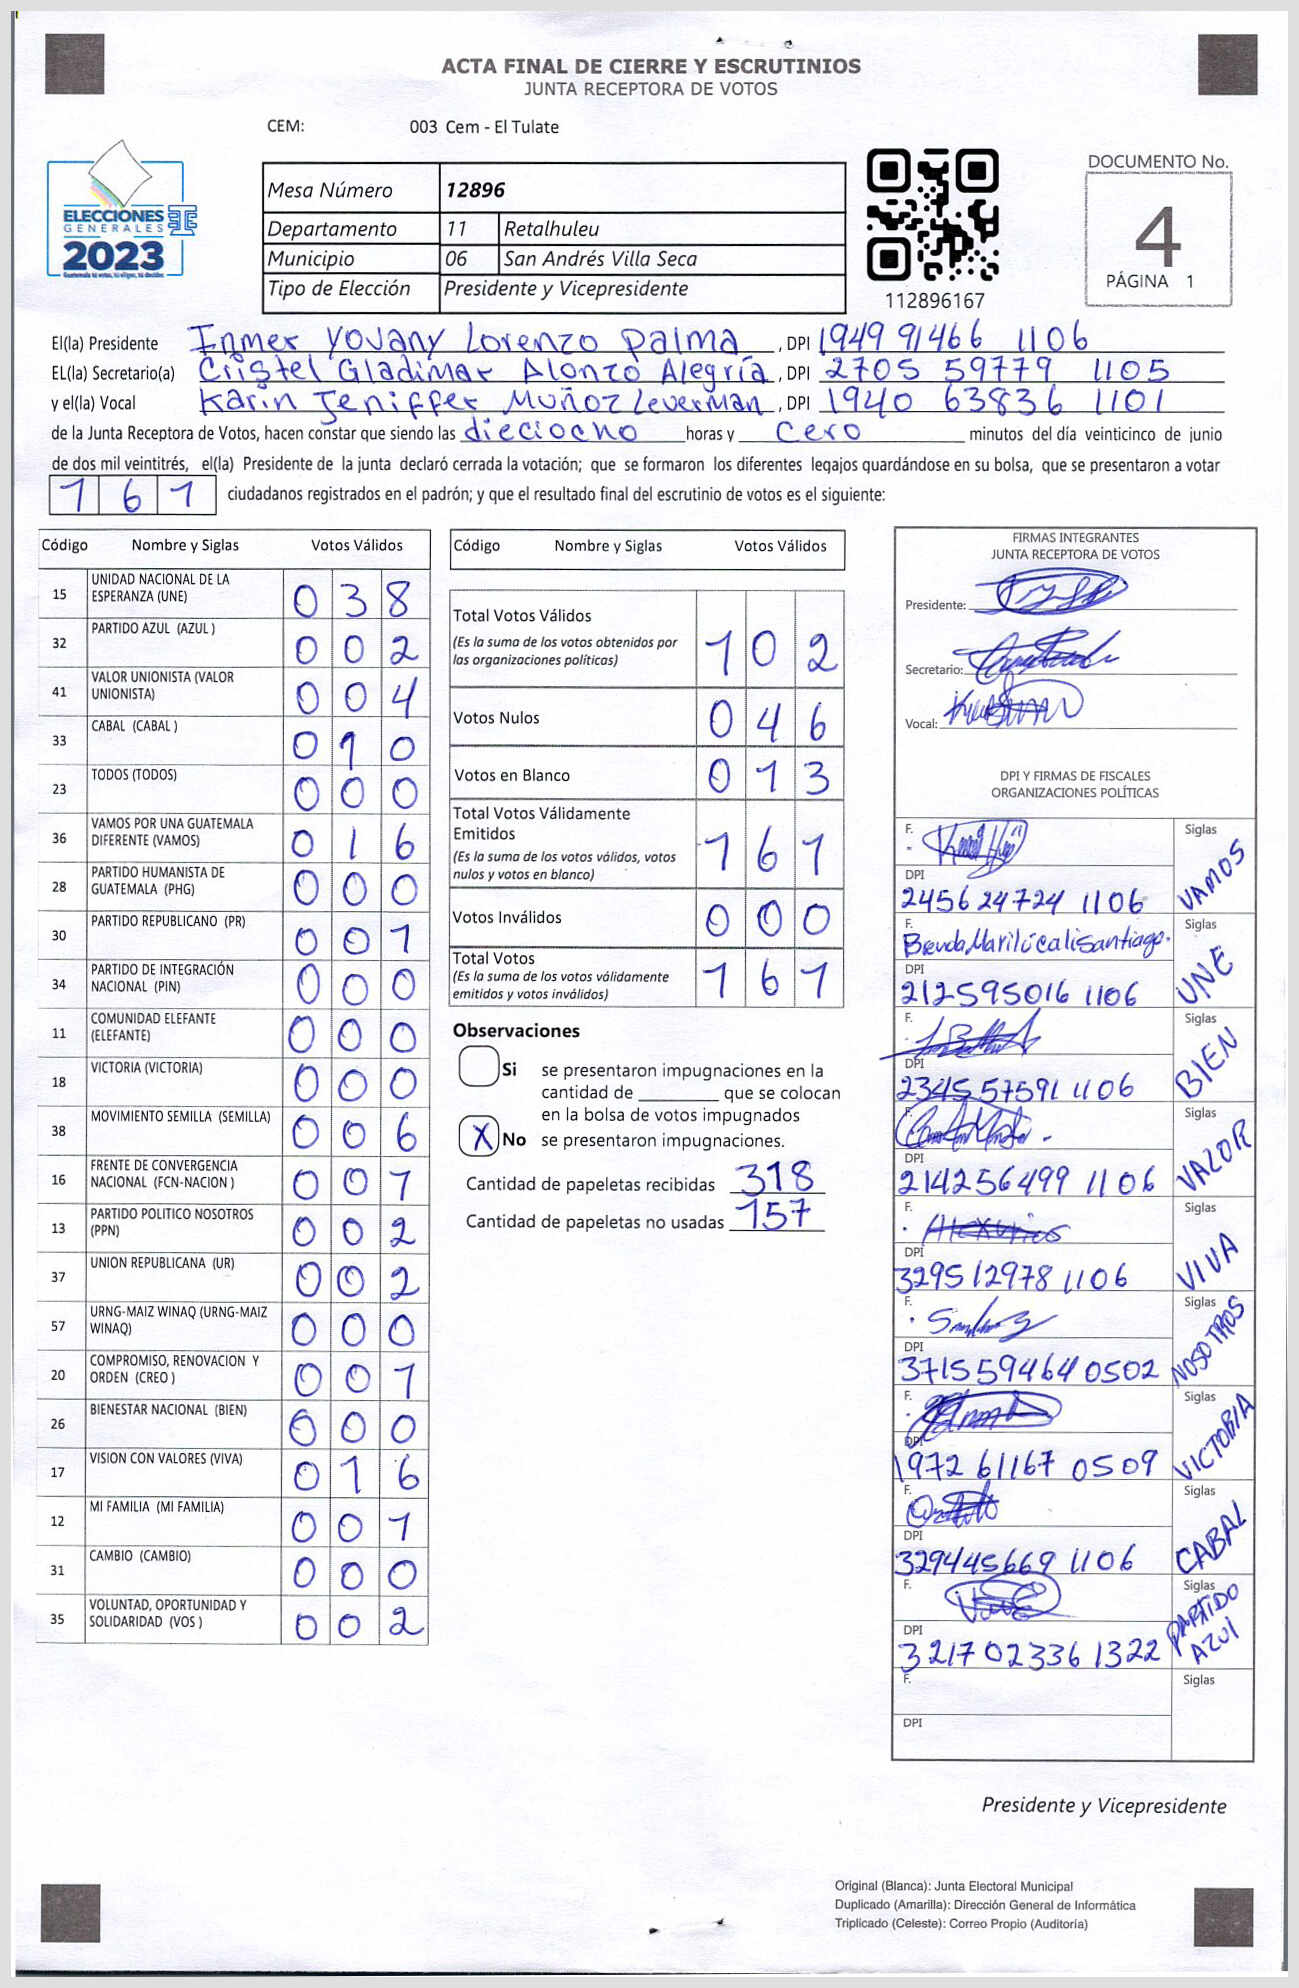 ACTA FINAL DE CIERRE Y ESCRUTINIOS
JUNTA RECEPTORA DE VOTOS
CEM: 003 Cem - El Tulate
ELECCIONES
GENERALES
2023
Guatemala tú votas, tú eliges, tú decides
Mesa Número 12896
Departamento 11 Retalhuleu
Municipio 06 San Andrés Villa Seca
Tipo de Elección Presidente y Vicepresidente
112896167
DOCUMENTO No.
4
PÁGINA 1
El(la) Presidente Inmer Yovany Lorenzo Palma, DPI 1949 91466 1106
EL(la) Secretario(a) Cristel Gladimar Alonzo Alegría, DPI 2705 59779 1105
y el(la) Vocal Karin Jeniffer Muñoz Leverman, DPI 1940 63836 1101
de la Junta Receptora de Votos, hacen constar que siendo las dieciocho horas y cero minutos del día veinticinco de junio
de dos mil veintitrés, el(la) Presidente de la junta declaró cerrada la votación; que se formaron los diferentes legajos quardándose en su bolsa, que se presentaron a votar
161 ciudadanos registrados en el padrón; y que el resultado final del escrutinio de votos es el siguiente:
Código Nombre y Siglas Votos Válidos
15 UNIDAD NACIONAL DE LA ESPERANZA (UNE) 038
32 PARTIDO AZUL (AZUL ) 002
41 VALOR UNIONISTA (VALOR UNIONISTA) 004
33 CABAL (CABAL ) 010
23 TODOS (TODOS) 000
36 VAMOS POR UNA GUATEMALA DIFERENTE (VAMOS) 016
28 PARTIDO HUMANISTA DE GUATEMALA (PHG) 000
30 PARTIDO REPUBLICANO (PR) 001
34 PARTIDO DE INTEGRACIÓN NACIONAL (PIN) 000
11 COMUNIDAD ELEFANTE (ELEFANTE) 000
18 VICTORIA (VICTORIA) 000
38 MOVIMIENTO SEMILLA (SEMILLA) 006
16 FRENTE DE CONVERGENCIA NACIONAL (FCN-NACION ) 001
13 PARTIDO POLITICO NOSOTROS (PPN) 002
37 UNION REPUBLICANA (UR) 002
57 URNG-MAIZ WINAQ (URNG-MAIZ WINAQ) 000
20 COMPROMISO, RENOVACION Y ORDEN (CREO ) 001
26 BIENESTAR NACIONAL (BIEN) 000
17 VISION CON VALORES (VIVA) 016
12 MI FAMILIA (MI FAMILIA) 001
31 CAMBIO (CAMBIO) 000
35 VOLUNTAD, OPORTUNIDAD Y SOLIDARIDAD (VOS ) 002
Código Nombre y Siglas Votos Válidos
Total Votos Válidos
(Es la suma de los votos obtenidos por las organizaciones políticas) 102
Votos Nulos 046
Votos en Blanco 013
Total Votos Válidamente Emitidos
(Es la suma de los votos válidos, votos nulos y votos en blanco) 161
Votos Inválidos 000
Total Votos
(Es la suma de los votos válidamente emitidos y votos inválidos) 161
Observaciones
Si se presentaron impugnaciones en la
cantidad de ________ que se colocan
en la bolsa de votos impugnados
X No se presentaron impugnaciones.
Cantidad de papeletas recibidas 318
Cantidad de papeletas no usadas 157
FIRMAS INTEGRANTES
JUNTA RECEPTORA DE VOTOS
Presidente:
Secretario:
Vocal:
DPI Y FIRMAS DE FISCALES
ORGANIZACIONES POLÍTICAS
F. Siglas VAMOS
DPI 2456 24724 1106
F. Brenda Marilú cali Santiago. Siglas UNE
DPI 212595016 1106
F. Siglas BIEN
DPI 2345 57591 1106
F. Siglas VALOR
DPI 214256499 1106
F. Siglas VIVA
DPI 329512978 1106
F. Siglas NOSOTROS
DPI 371559464 0502
F. Siglas VICTORIA
DPI 1972 61167 0509
F. Siglas CABAL
DPI 329445669 1106
F. Siglas PARTIDO AZUl
DPI 3217 02336 1322
F. Siglas
DPI
Presidente y Vicepresidente
Original (Blanca): Junta Electoral Municipal
Duplicado (Amarilla): Dirección General de Informática
Triplicado (Celeste): Correo Propio (Auditoría)